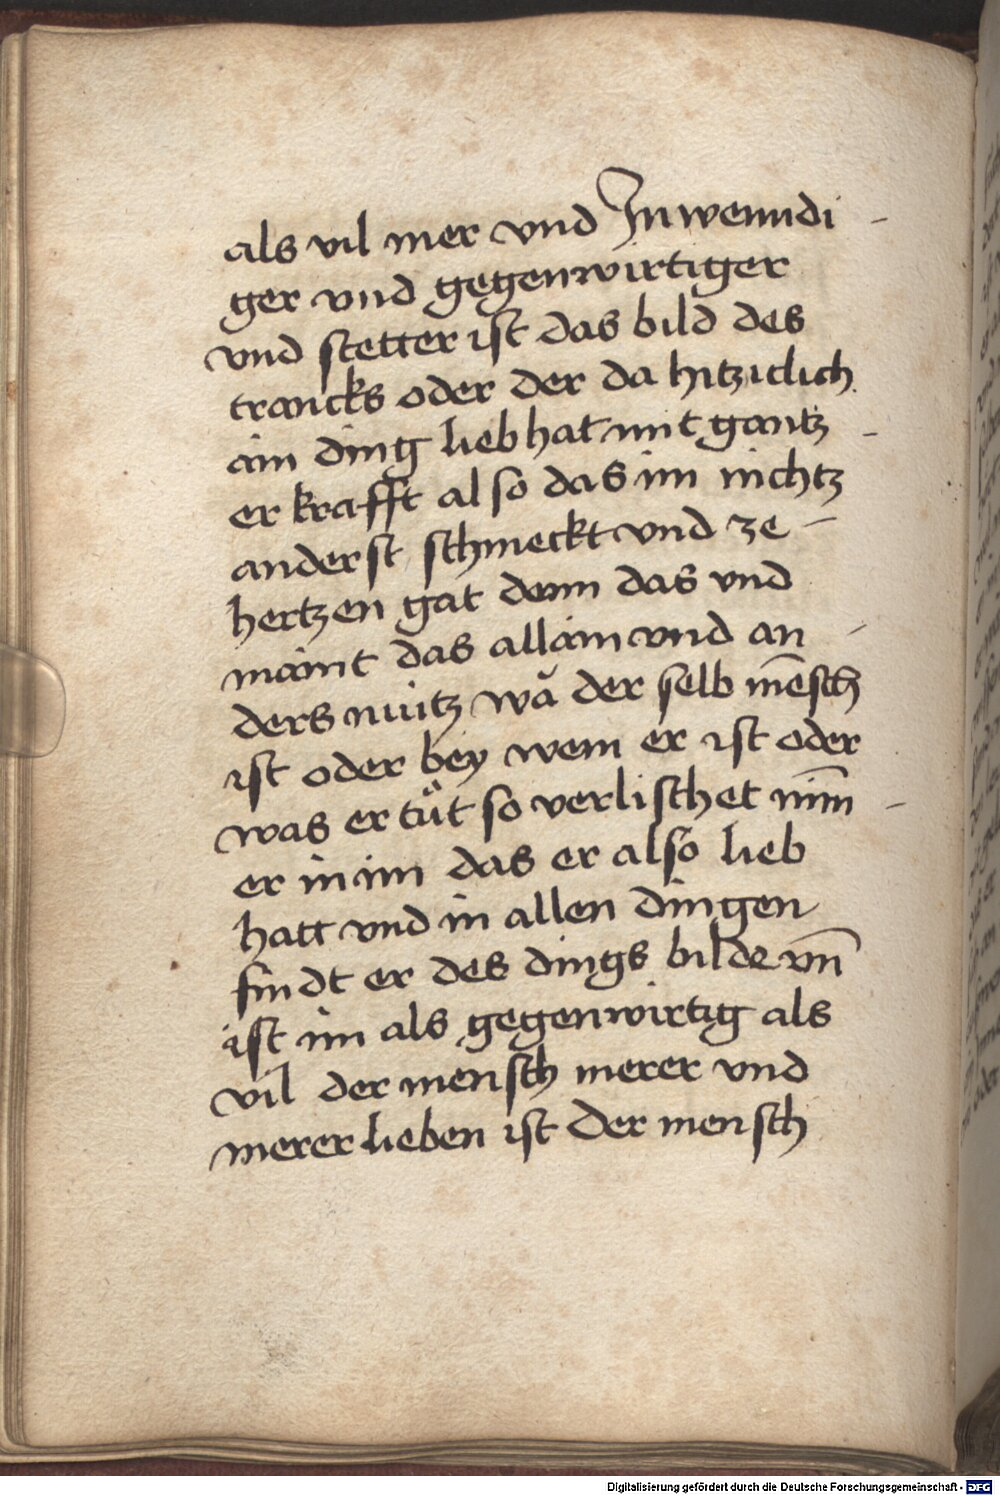 als vil mer vnd Inwenndi -
ger vnd gegenwirtiger
vnd stetter ist das bild des
trancks oder der da hitziclich
ain ding lieb hat mit gantz -
er krafft also das im nichtz
anderst schmeckt vnd ze -
hertzen gat denn das vnd
maint das allain vnd an -
ders niutz wă der selb mēsch
ist oder bey wem er ist oder
was er tůt so verlischet nīm -
er in im das er also lieb
hatt vnd in allen dingen
findt er des dings bilde vn̄
ist im als gegenwirtig als
vil der mensch merer vnd
merer lieben ist Der mensch
Digitalisierung gefördert durch die Deutsche Forschungsgemeinschaft - DFG